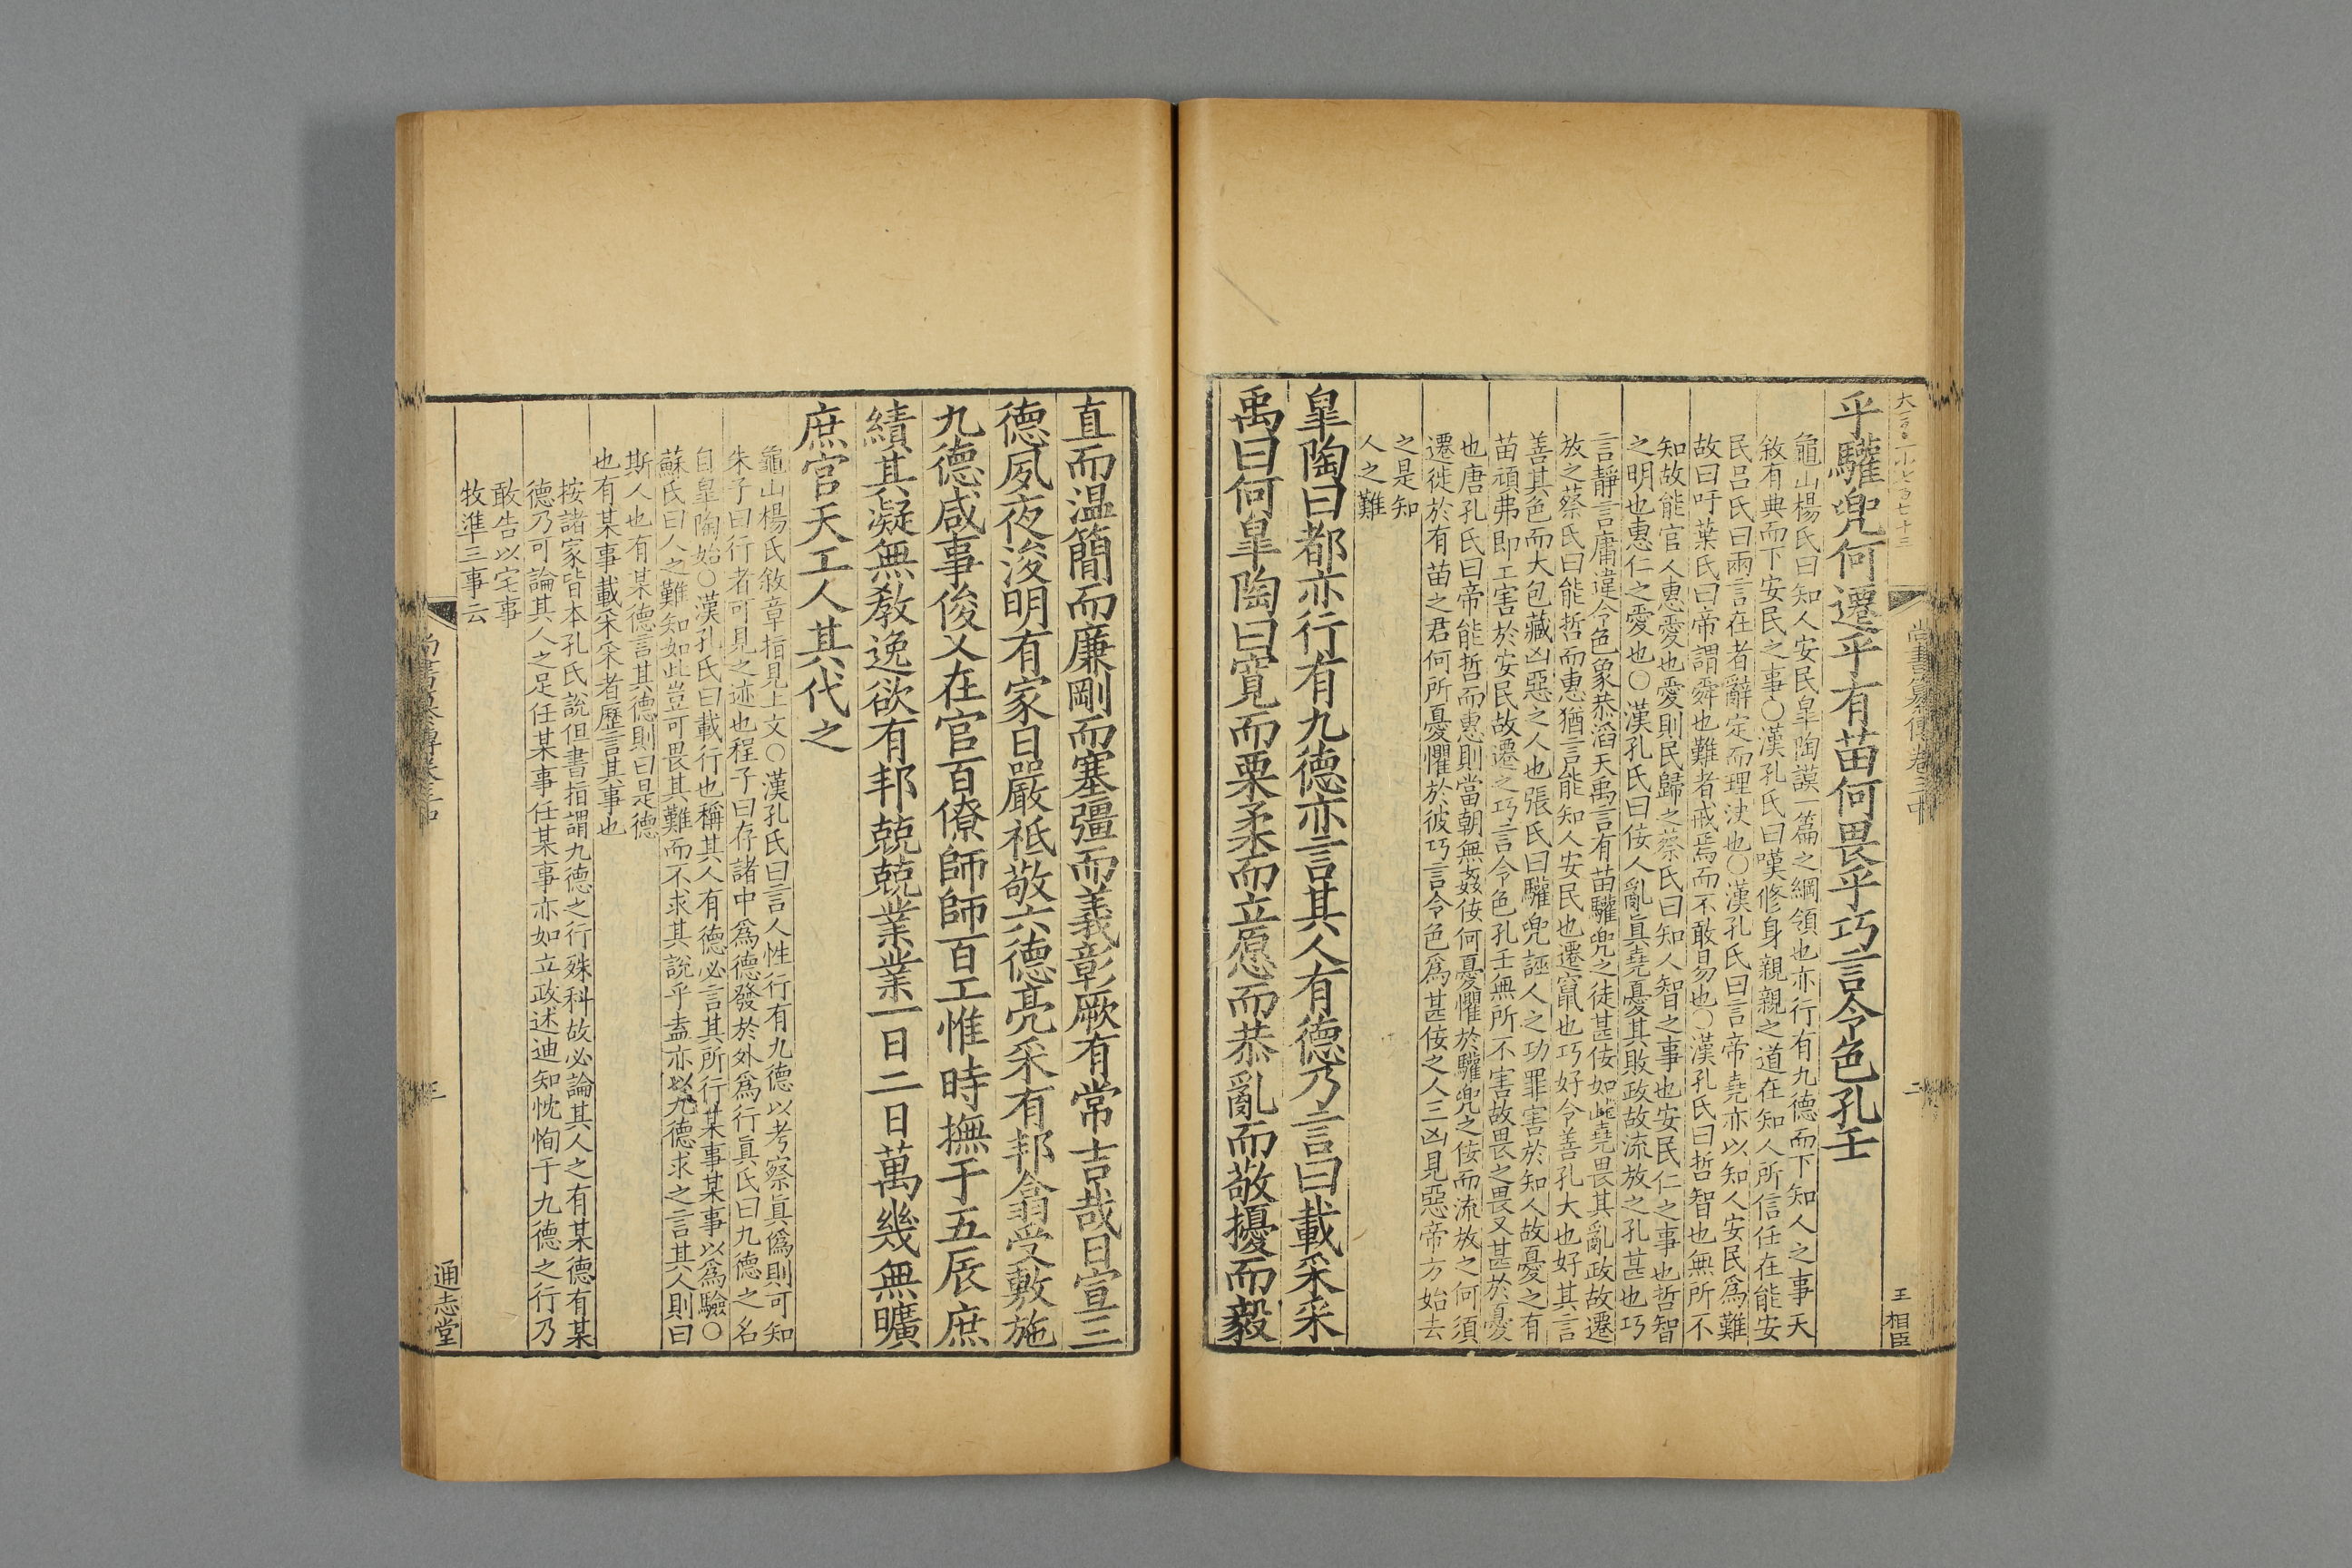 尚書纂傳卷三中
二
王相臣
乎驩兜何遷乎有苗何畏乎巧言令色孔壬
龜山楊氏曰知人安民皐陶謨一篇之綱領也亦行有九德而下知人之事天
敘有典而下安民之事○漢孔氏曰嘆修身親親之道在知人所信任在能安
民呂氏曰兩言在者辭定而理決也○漢孔氏曰言帝堯亦以知人安民爲難
故曰吁葉氏曰帝謂舜也難者戒焉而不敢易也○漢孔氏曰哲智也無所不
知故能官人惠愛也愛則民歸之蔡氏曰知人智之事也安民仁之事也哲智
之明也惠仁之愛也○漢孔氏曰佞人亂真堯憂其敗政故流放之孔甚也巧
言靜言庸違令色象恭滔天禹言有苗驩兜之徒甚佞如此堯畏其亂政故遷
放之蔡氏曰能哲而惠猶言能知人安民也遷竄也巧好令善孔大也好其言
善其色而大包藏凶惡之人也張氏曰驩兜誣人之功罪害於知人故憂之有
苗頑弗即工害於安民故遷之巧言令色孔壬無所不害故畏之畏又甚於憂
也唐孔氏曰帝能哲而惠則當朝無姦佞何憂懼於驩兜之佞而流放之何須
遷徙於有苗之君何所憂懼於彼巧言令色爲甚佞之人三凶見惡帝方始去
之是知
人之難
皐陶曰都亦行有九德亦言其人有德乃言曰載采采
禹曰何皐陶曰寬而栗柔而立愿而恭亂而敬擾而毅
直而温簡而廉剛而塞彊而義彰厥有常吉哉日宣三
德夙夜浚明有家日嚴祗敬六德亮采有邦翕受敷施
九德咸事俊乂在官百僚師師百工惟時撫于五辰庶
績其凝無敎逸欲有邦兢兢業業一日二日萬幾無曠
庶官天工人其代之
龜山楊氏敘章指見上文○漢孔氏曰言人性行有九德以考察眞僞則可知
朱子曰行者可見之迹也程子曰存諸中爲德發於外爲行眞氏曰九德之名
自皐陶始○漢孔氏曰載行也稱其人有德必言其所行某事某事以爲驗○
蘇氏曰人之難知如此豈可畏其難而不求其說乎盍亦以九德求之言其人則曰
斯人也有某德言其德則曰是德
也有某事載采采者歷言其事也
按諸家皆本孔氏說但書指謂九德之行殊科故必論其人之有某德有某
德乃可論其人之足任某事任某事亦如立政述迪知忱恂于九德之行乃
敢告以宅事
牧準三事云
尚書纂傳卷三中
三
通志堂